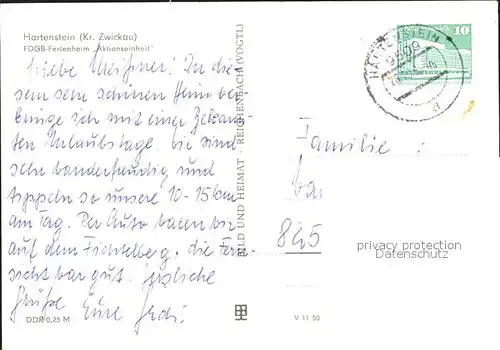 Hartenstein (Kr. Zwickau)
FDGB-Ferienheim „Aktionseinheit"
Liebe Meißner! In die-
sem schönen Heim ver-
bringe ich mit einer Bekann-
ten Urlaubstage. Wir sind
sehr wanderfreudig und
tippeln so unsere 10-15 km
am Tag. Per Auto waren wir
auf dem Fichtelberg, die Fern-
sicht war gut. Herzliche
Grüße Eure
DDR 0,25 M
BILD UND HEIMAT · REICHENBACH (VOGTL)
V 11 50
HARTENSTEIN
9509
a
10
Familie:
825
privacy protection
Datenschutz